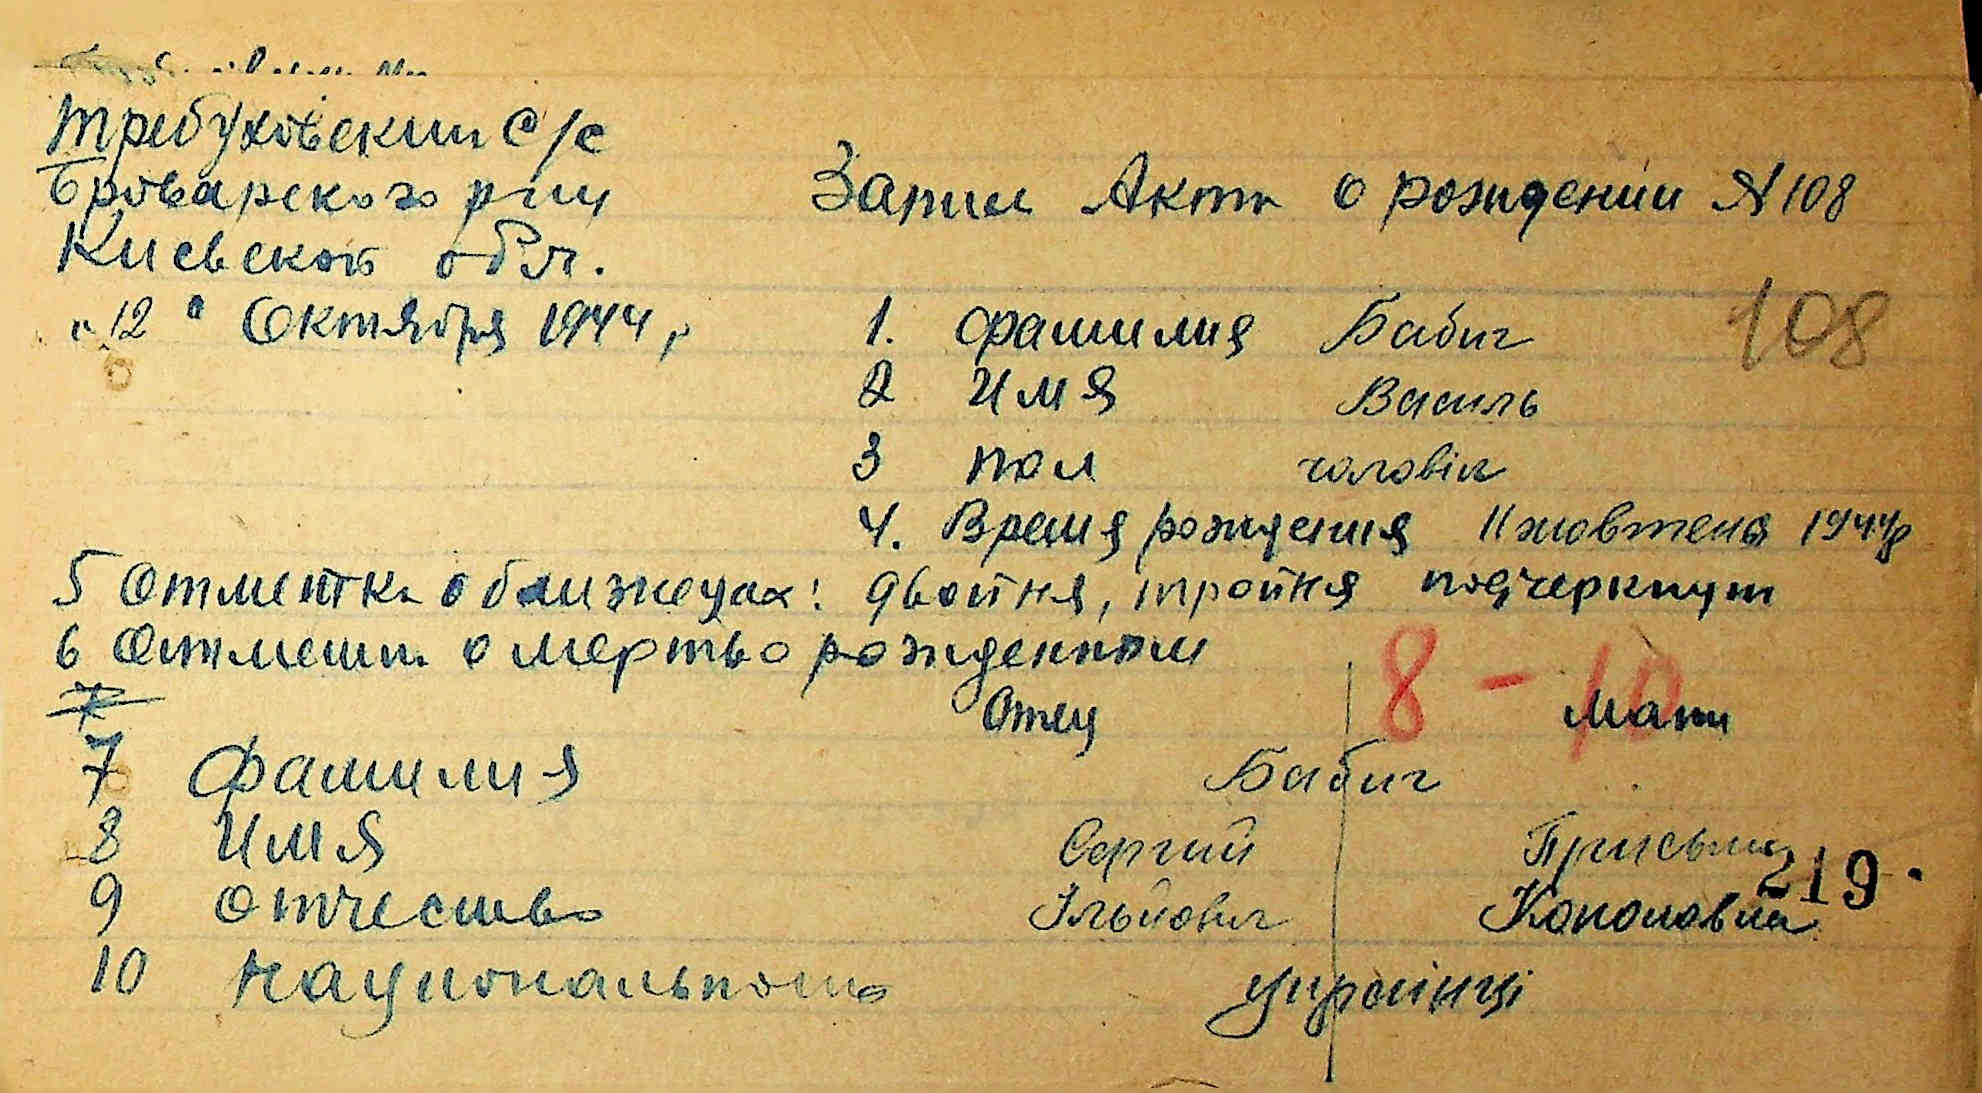 Требуховский с/с
Броварского р-ну
Киевской обл.
"12" Октября 1944 г
Запись Акта о рождении № 108
108
1. фамилия Бабич
2 Имя Василь
3 пол чоловік
4. Время рождения 11 жовтена 1944 р
5 Отметка о близнецах: двойня, тройня подчеркнут
6 Отметит о мертво рожденном
8 - 10
Отец Мати
7 Фамилия Бабич
8 Имя Сергий Приська
9 Отчество Ільйович Кононовна
219.
10 Национальность українці